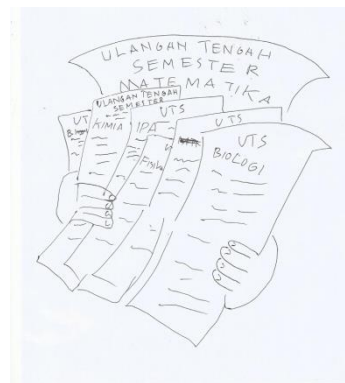 ULANGAN TENGAH
SEMESTER
MATEMATIKA
ULANGAN TENGAH
SEMESTER
KIMIA
UTS
IPA
UTS
UTS
Fisika
UTS
BIOLOGI